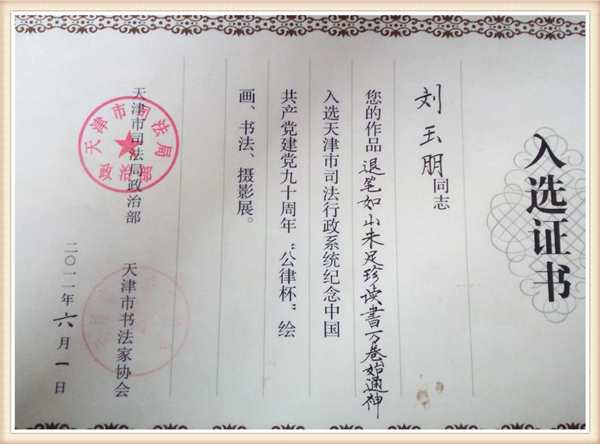 入选证书
刘玉朋同志
您的作品 退笔如山未足珍读書万卷始通神
入选天津市司法行政系统纪念中国
共产党建党九十周年“公律杯”绘
画、书法、摄影展。
天津市司法局政治部 天津市书法家协会
天津市司法局
政治部
二〇一一年六月一日